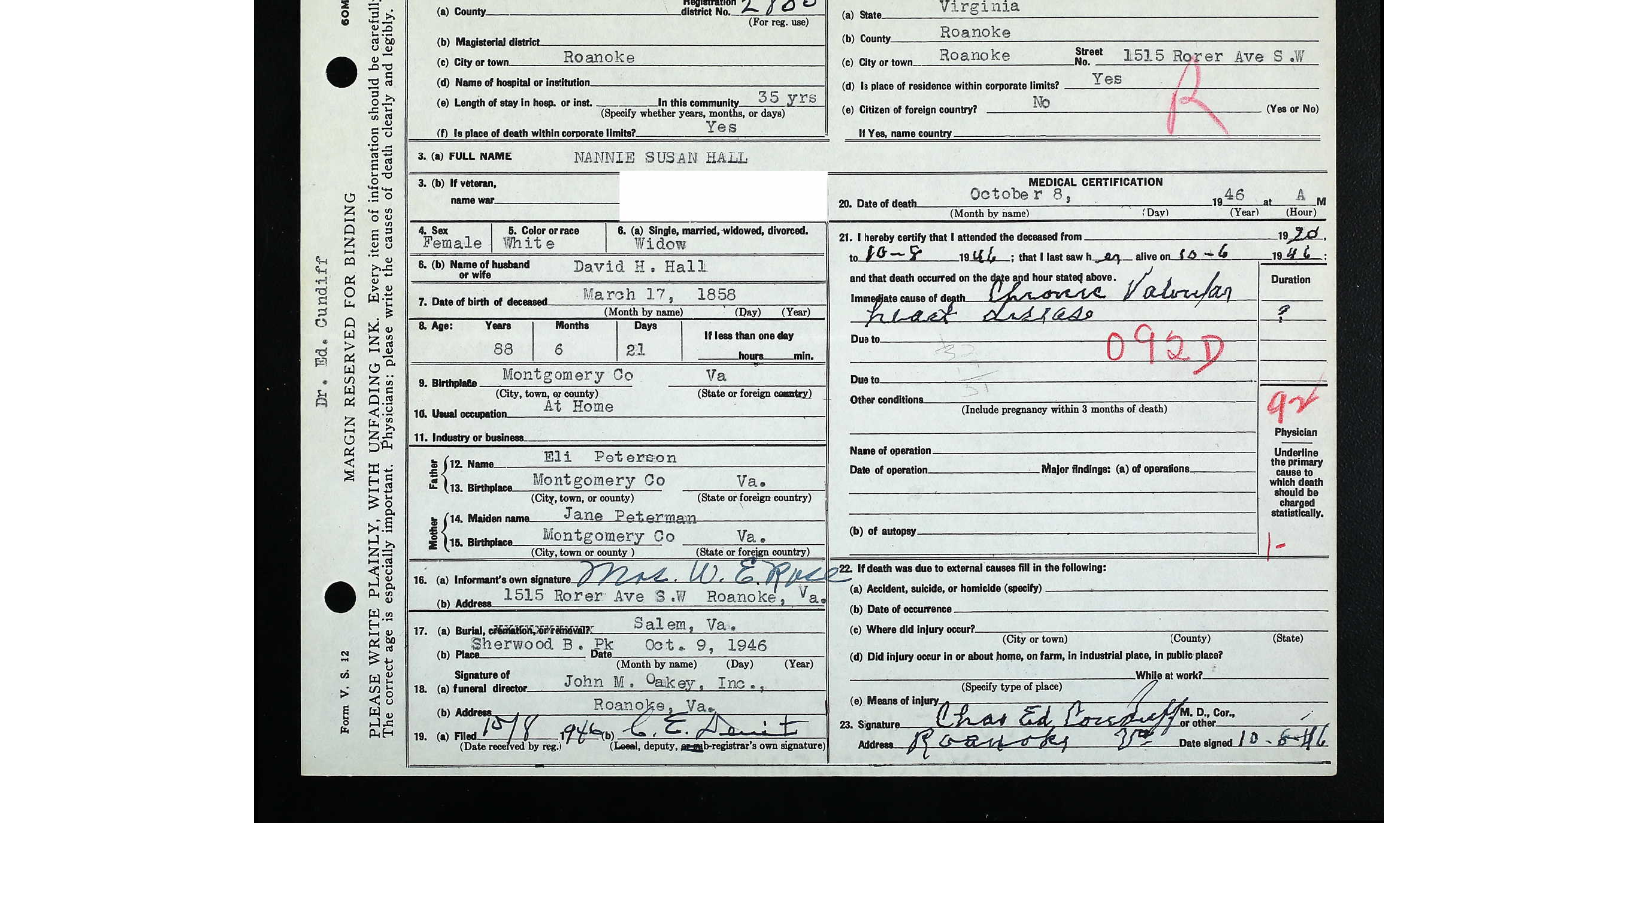 60M
(a) County
Registration
district No. 2800
(For reg. use)
(b) Magisterial district
(c) City or town Roanoke
(d) Name of hospital or institution
(e) Length of stay in hosp. or inst. In this community 35 yrs
(Specify whether years, months, or days)
(f) Is place of death within corporate limits? Yes
(a) State Virginia
(b) County Roanoke
(c) City or town Roanoke Street No. 1515 Rorer Ave S.W
(d) Is place of residence within corporate limits? Yes
(e) Citizen of foreign country? No (Yes or No)
If Yes, name country
R
3. (a) FULL NAME NANNIE SUSAN HALL
3. (b) If veteran,
name war
4. Sex 5. Color or race 6. (a) Single, married, widowed, divorced.
Female White Widow
6. (b) Name of husband or wife David H. Hall
7. Date of birth of deceased March 17, 1858
(Month by name) (Day) (Year)
8. Age: Years Months Days If less than one day
88 6 21 hours min.
9. Birthplace Montgomery Co Va
(City, town, or county) (State or foreign country)
10. Usual occupation At Home
11. Industry or business
Father
12. Name Eli Peterson
13. Birthplace Montgomery Co Va.
(City, town, or county) (State or foreign country)
Mother
14. Maiden name Jane Peterman
15. Birthplace Montgomery Co Va.
(City, town or county ) (State or foreign country)
16. (a) Informant's own signature Mrs. W. E. Rose
(b) Address 1515 Rorer Ave S.W Roanoke, Va.
17. (a) Burial, cremation, or removal? Salem, Va.
(b) Place Sherwood B. Pk Date Oct. 9, 1946
(Month by name) (Day) (Year)
Signature of
18. (a) funeral director John M. Oakey, Inc.,
(b) Address Roanoke, Va.
19. (a) Filed 10/8 1946 (b) C. E.
(Date received by reg.) (Local, deputy, or sub-registrar's own signature)
MEDICAL CERTIFICATION
20. Date of death October 8, 1946 at A M
(Month by name) (Day) (Year) (Hour)
21. I hereby certify that I attended the deceased from 19
to 10-8 1946; that I last saw her alive on 10-6 1946;
and that death occurred on the date and hour stated above. Duration
Immediate cause of death Chronic Valvular
heart disease ?
Due to
092D
Due to
Other conditions
(Include pregnancy within 3 months of death)
92
Physician
Underline
the primary
cause to
which death
should be
charged
statistically.
Name of operation
Date of operation Major findings: (a) of operations
(b) of autopsy
1-
22. If death was due to external causes fill in the following:
(a) Accident, suicide, or homicide (specify)
(b) Date of occurrence
(c) Where did injury occur?
(City or town) (County) (State)
(d) Did injury occur in or about home, on farm, in industrial place, in public place?
While at work?
(Specify type of place)
(e) Means of injury
23. Signature Chas Ed Cundiff M. D., Cor., or other
Address Roanoke Va Date signed 10-8-46
Dr. Ed. Cundiff
MARGIN RESERVED FOR BINDING
Form V. S. 12
PLEASE WRITE PLAINLY, WITH UNFADING INK. Every item of information should be carefully
The correct age is especially important. Physicians: please write the causes of death clearly and legibly.